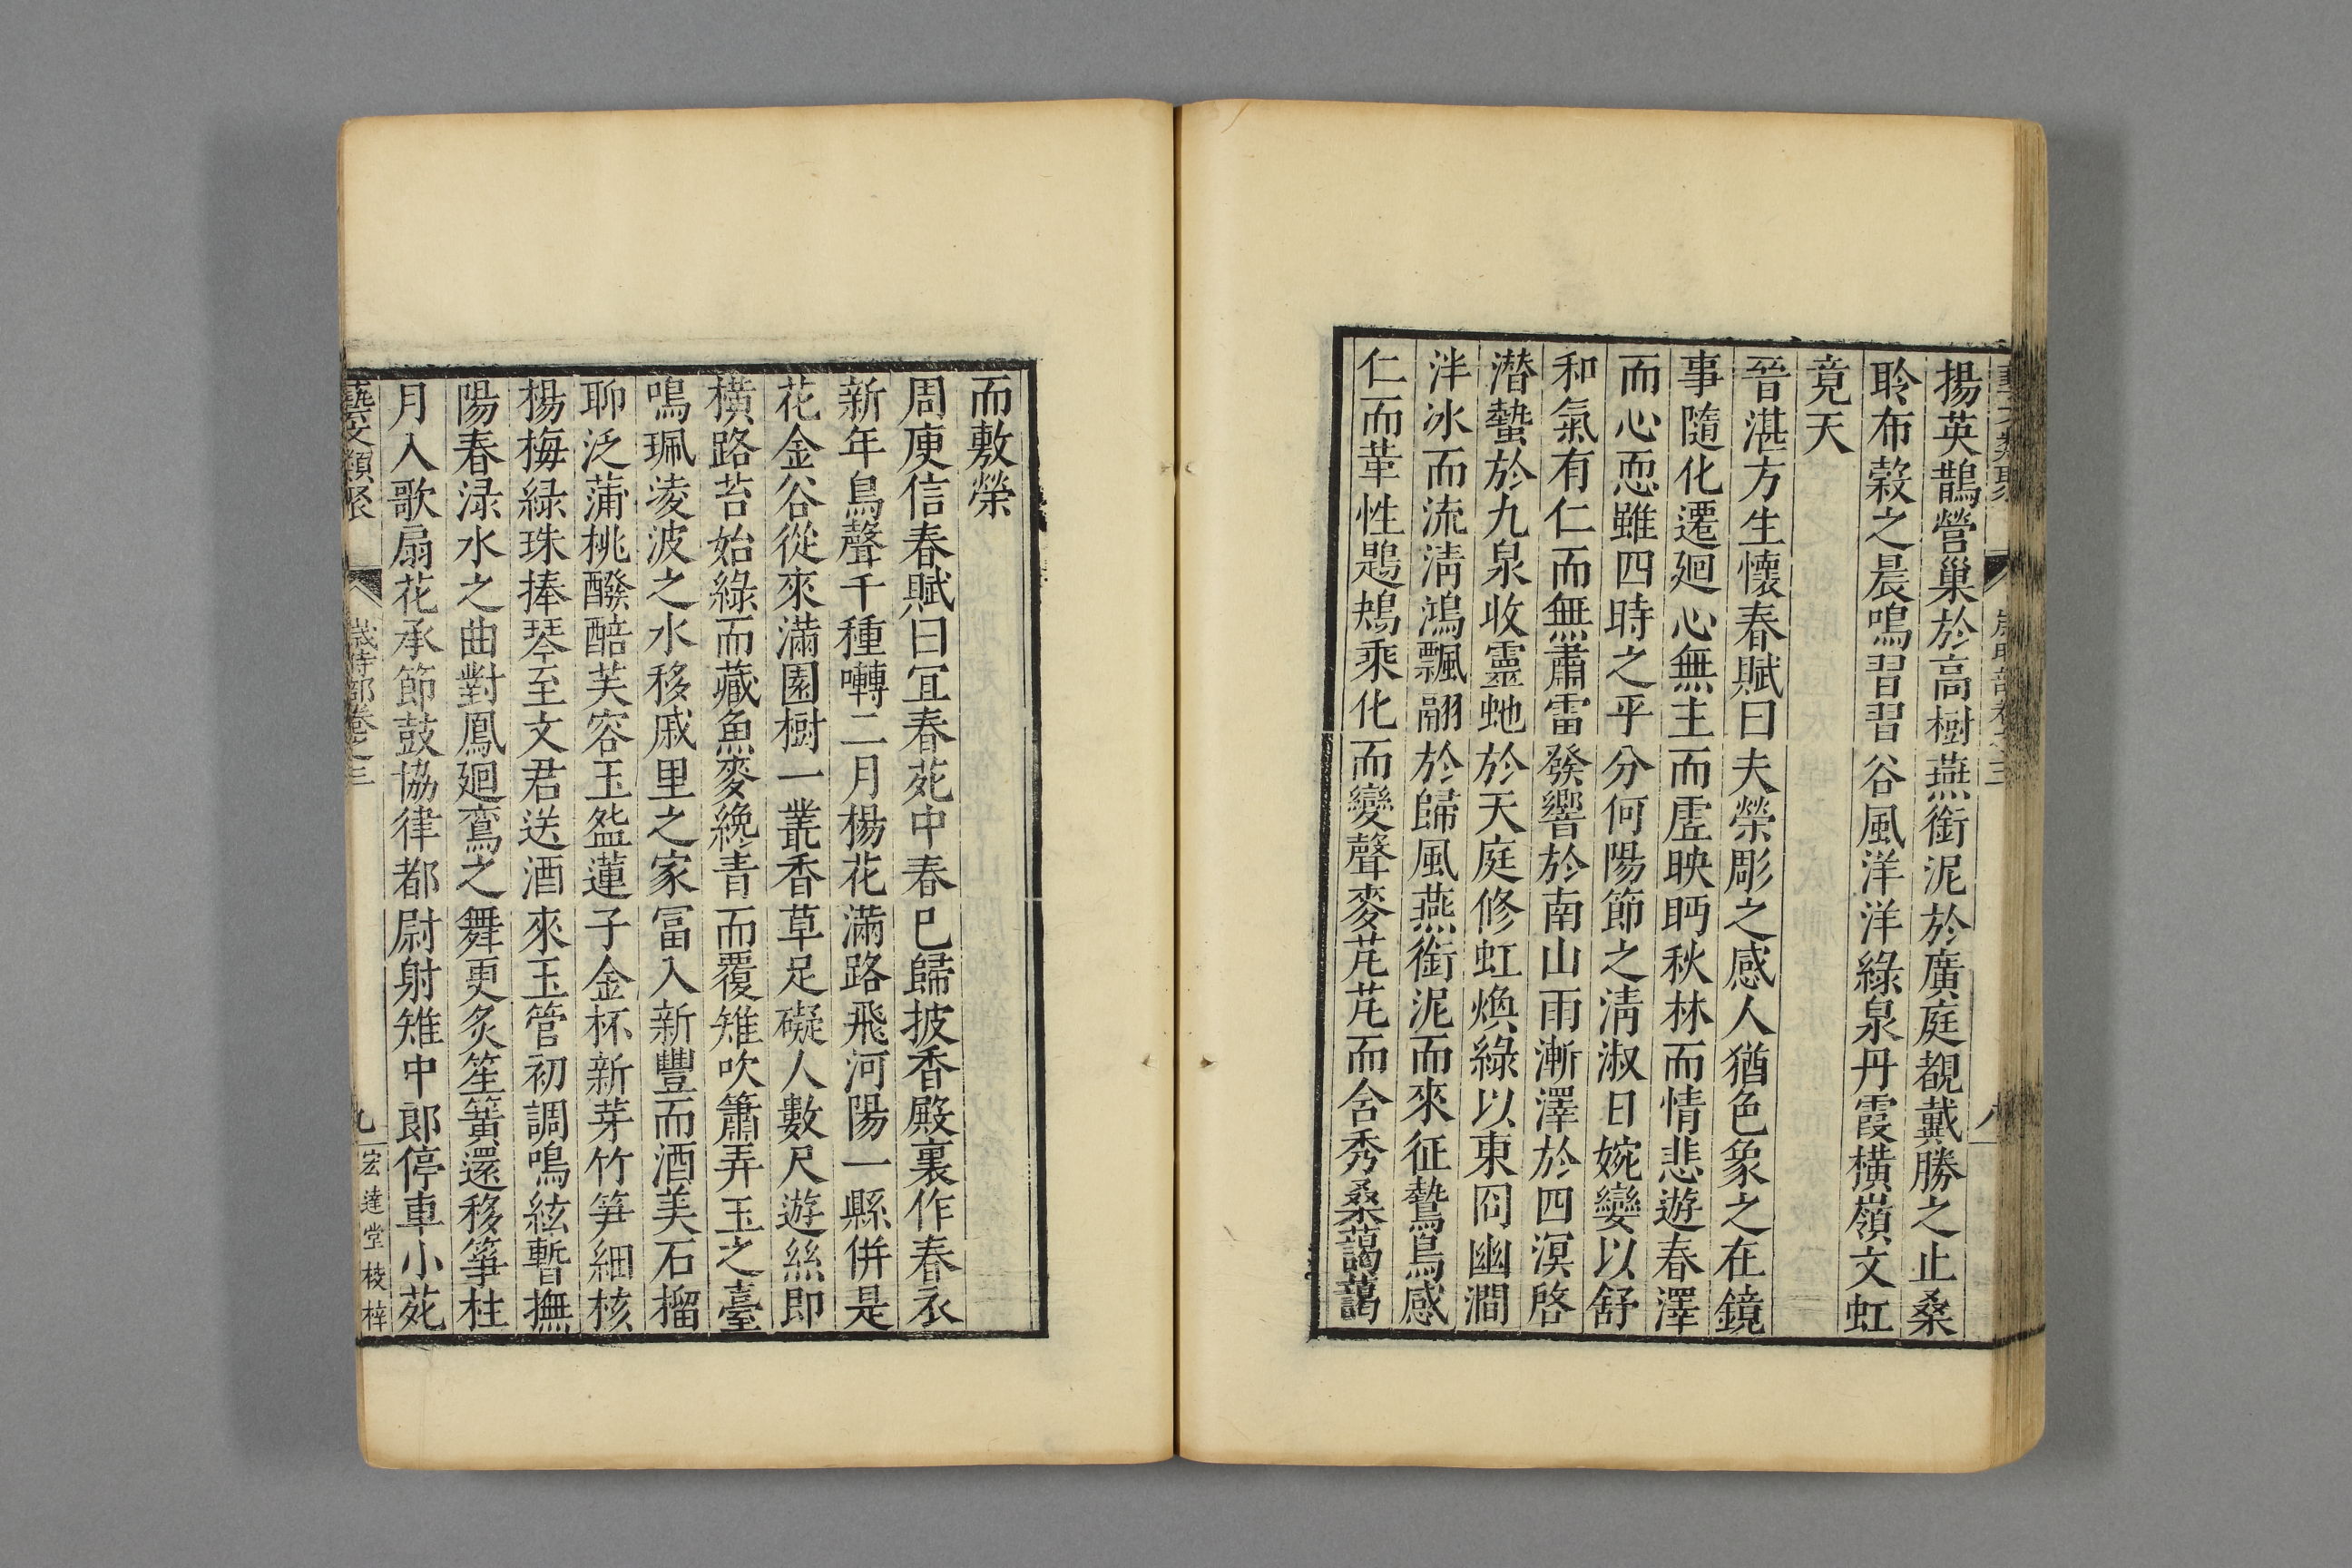 揚英鵲營巢於高樹燕銜泥於廣庭覩戴勝之止桑
聆布穀之晨鳴習習谷風洋洋綠泉丹霞橫嶺文虹
竟天
晉湛方生懷春賦曰夫榮彫之感人猶色象之在鏡
事隨化遷廻心無主而虛映眄秋林而情悲遊春澤
而心恧雖四時之平分何陽節之淸淑日婉孌以舒
和氣有仁而無肅雷發響於南山雨漸澤於四溟啓
潜蟄於九泉收靈虵於天庭修虹煥綠以東冏幽澗
泮冰而流淸鴻飄翮於歸風燕銜泥而來征鷙鳥感
仁而革性鶗鴂乘化而變聲麥芃芃而含秀桑藹藹
而敷榮
周庾信春賦曰宜春苑中春已歸披香殿裏作春衣
新年鳥聲千種囀二月楊花滿路飛河陽一縣併是
花金谷從來滿園樹一叢香草足礙人數尺遊絲即
橫路苔始綠而藏魚麥纔青而覆雉吹簫弄玉之臺
鳴珮淩波之水移戚里之家冨入新豐而酒美石榴
聊泛蒲桃醱醅芙容玉盌蓮子金杯新芽竹笋細核
楊梅綠珠捧琴至文君送酒來玉管初調鳴絃暫撫
陽春淥水之曲對鳳廻鸞之舞更炙笙簧還移箏柱
月入歌扇花承節鼓協律都尉射雉中郎停車小苑
藝文類聚 歲時部卷之三 九 宏達堂校梓